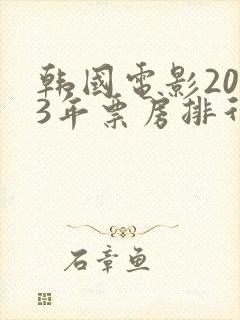 韩國電影20
3年票房排行
石章鱼